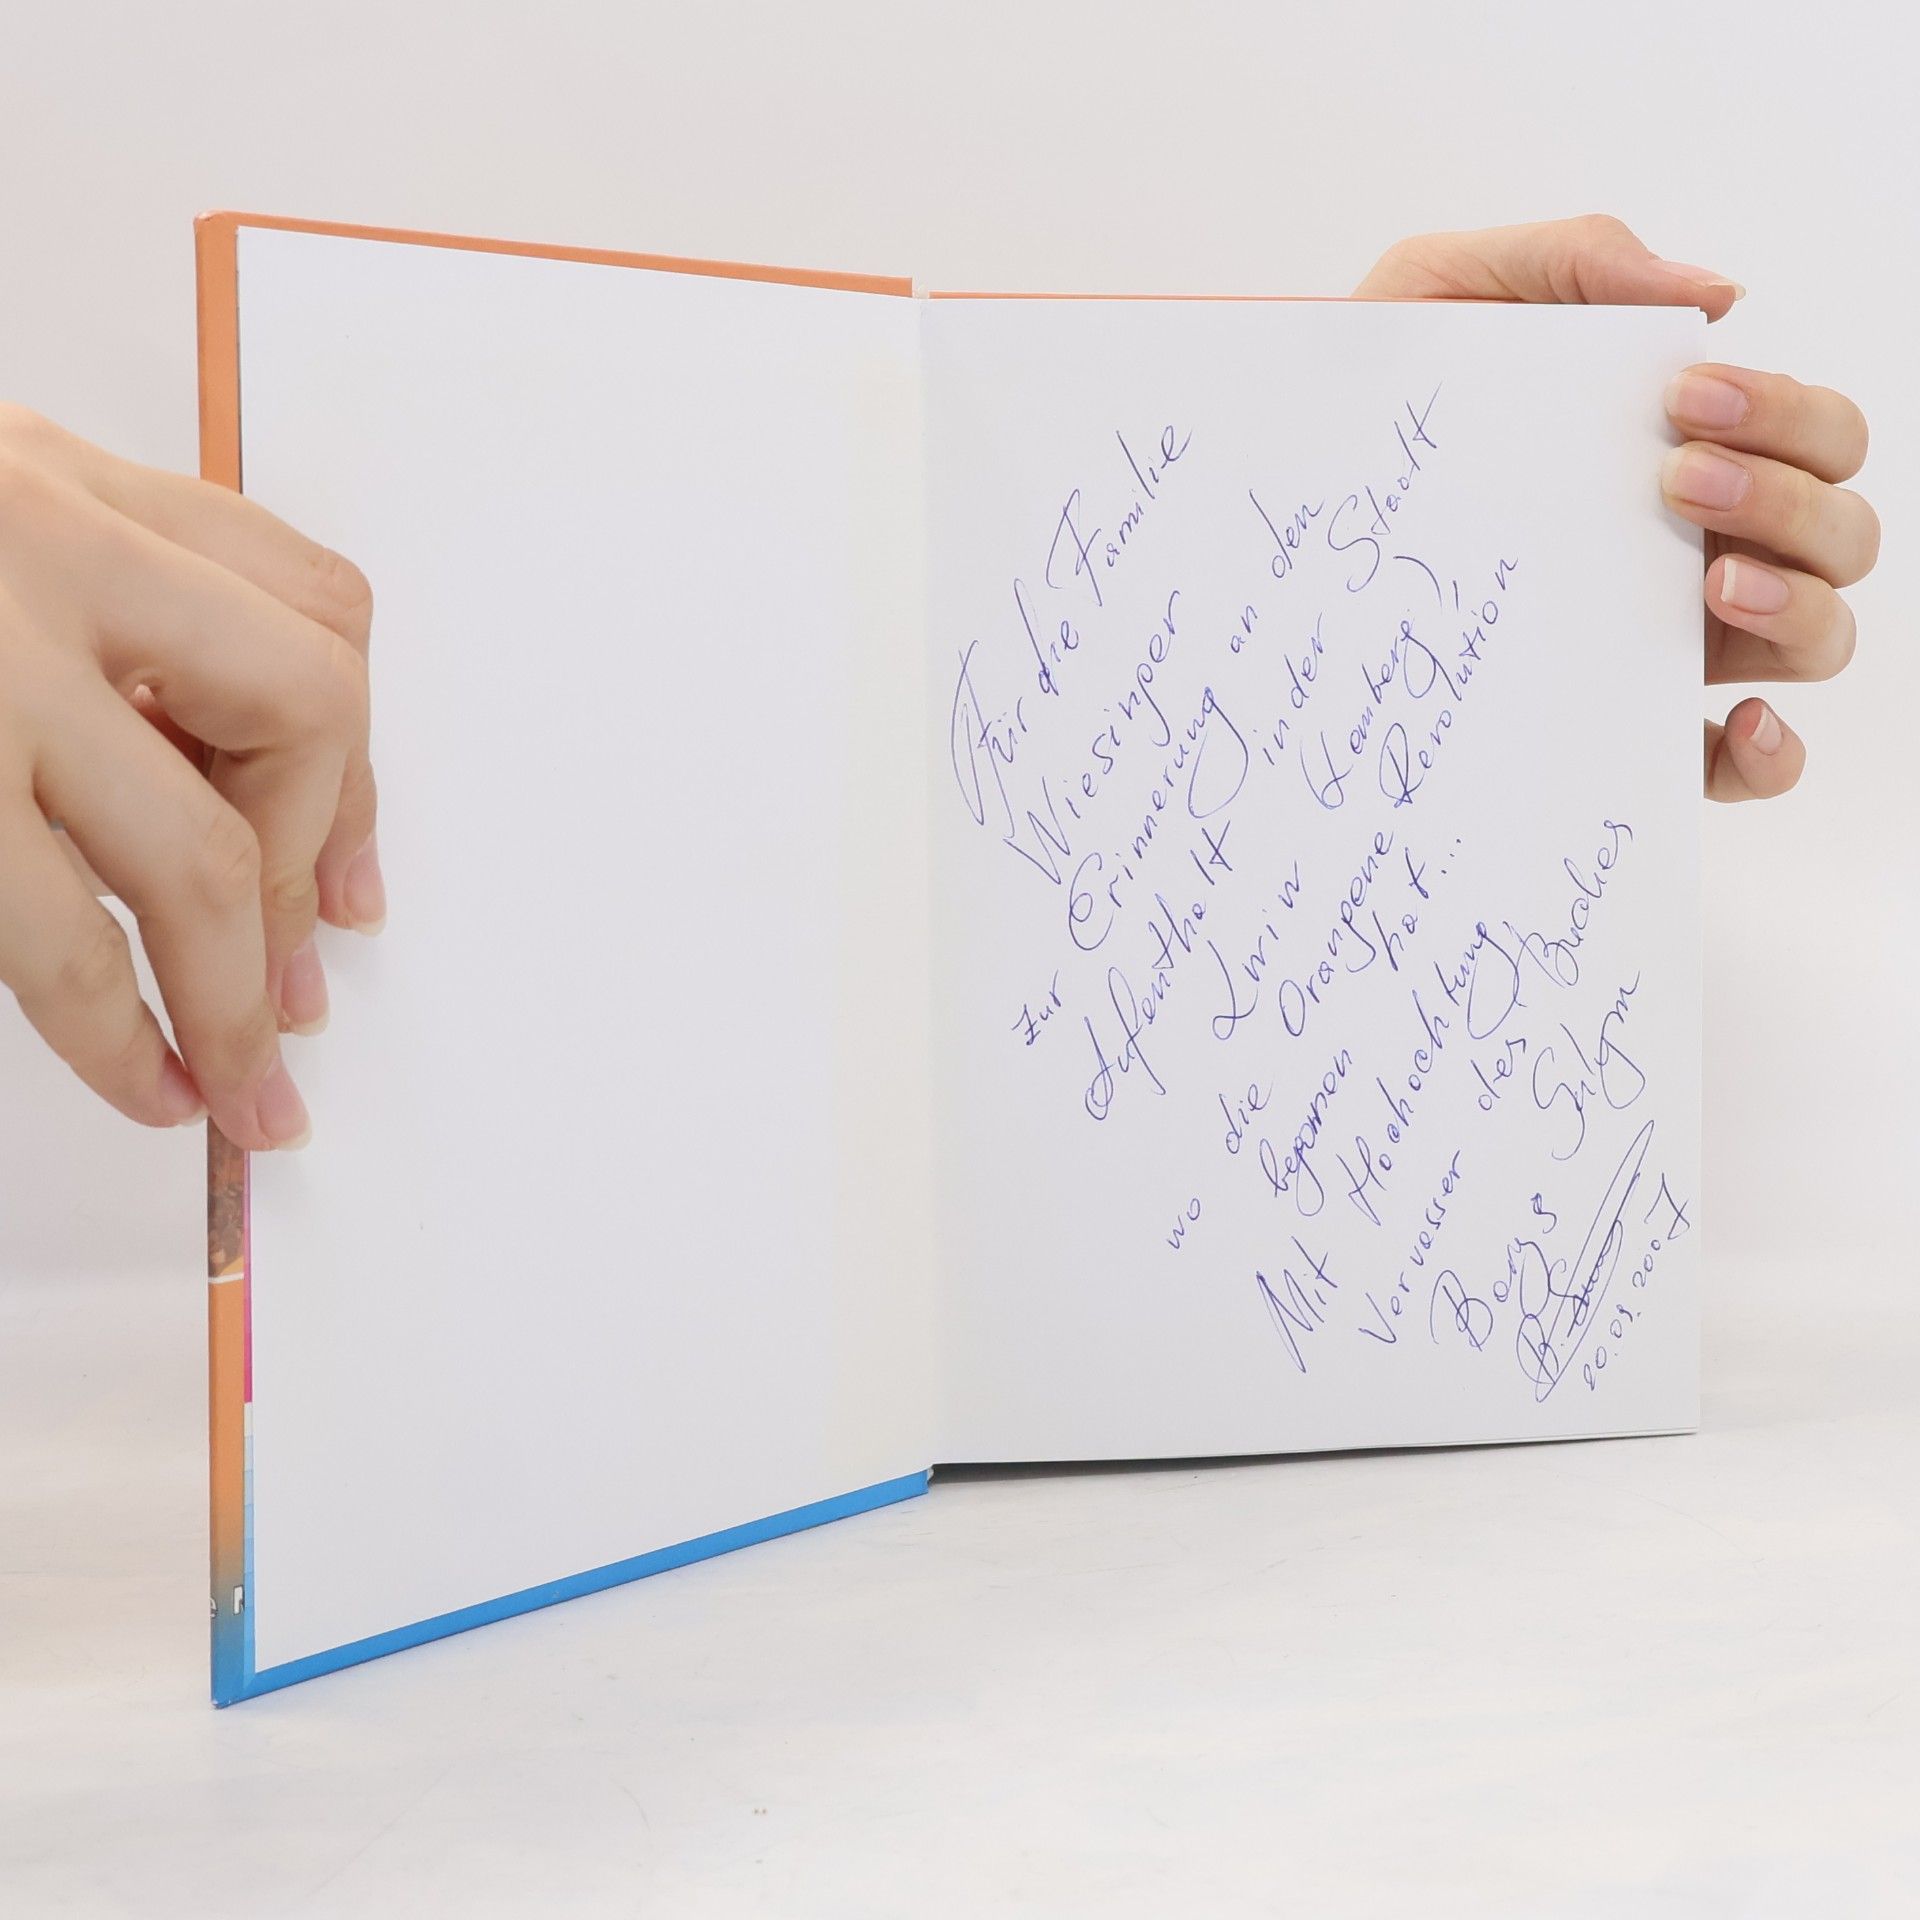 Für die Familie
Wiesinger
Zur Erinnerung an den
Aufenthalt in der Stadt
Lwiw (Lemberg),
wo die Orangene Revolution
begonnen hat...
Mit Hochochtung,
Vervasser des Buches
Borys
20.09.2007